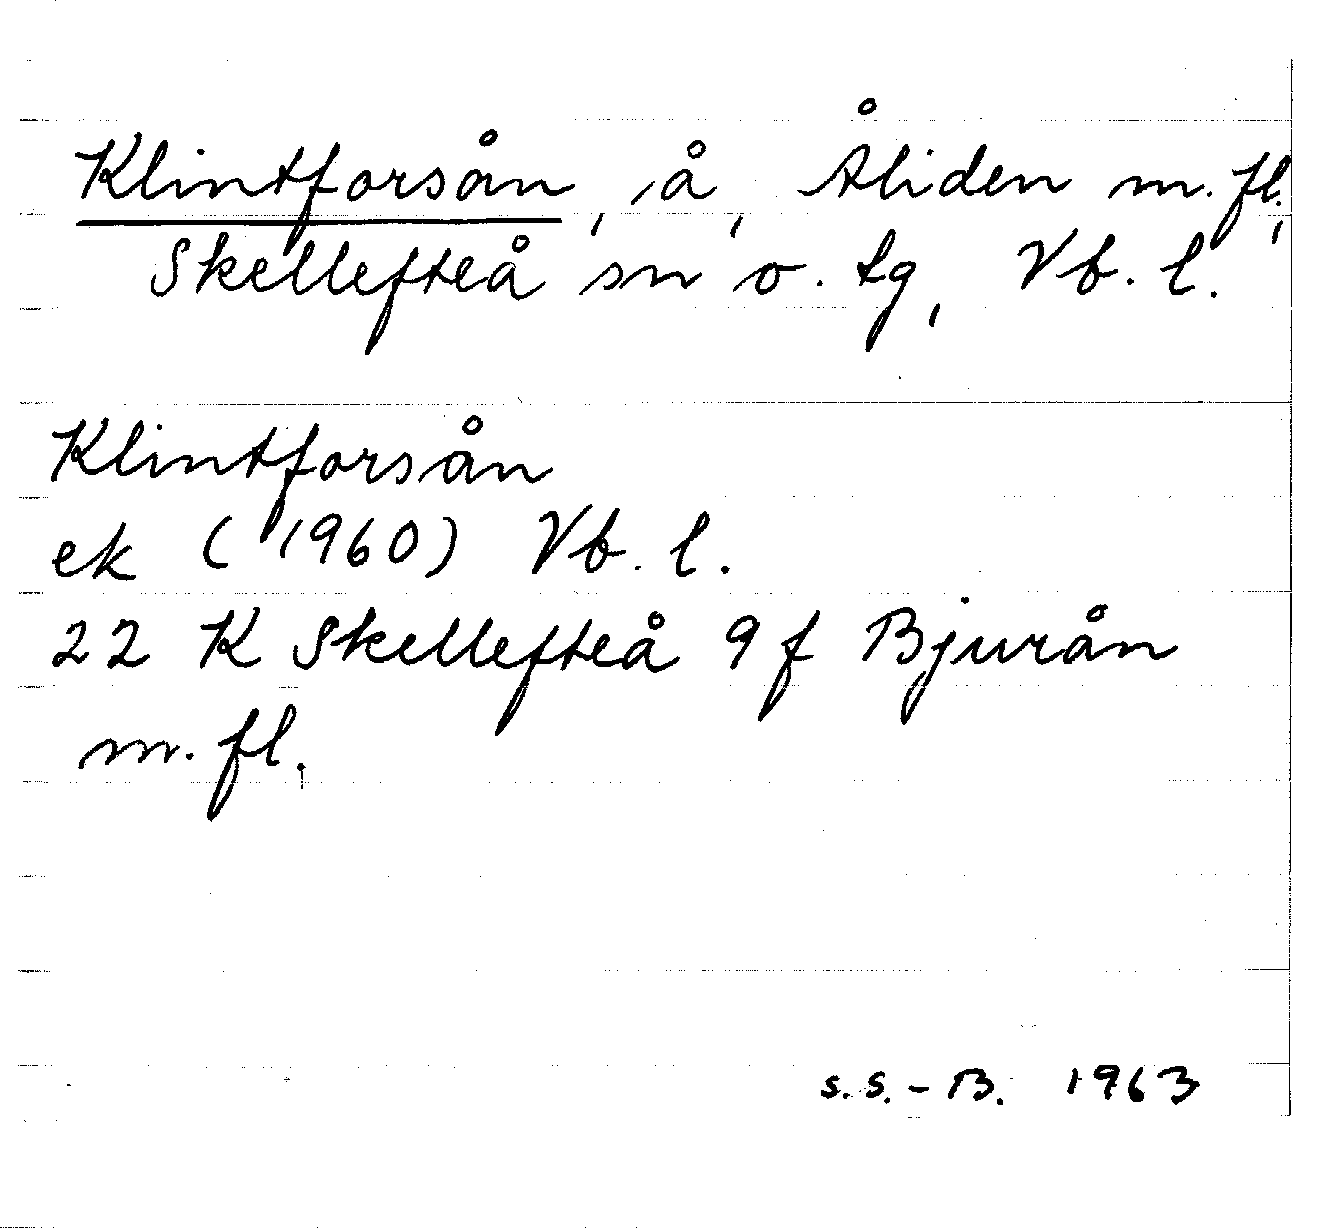 Klintforsån, å, Åliden m.fl.,
Skellefteå sn o. lg, Vb. l.
Klintforsån
ek (1960) Vb. l.
22 K Skellefteå 9f Bjurån
m.fl.
s.s.-B. 1963